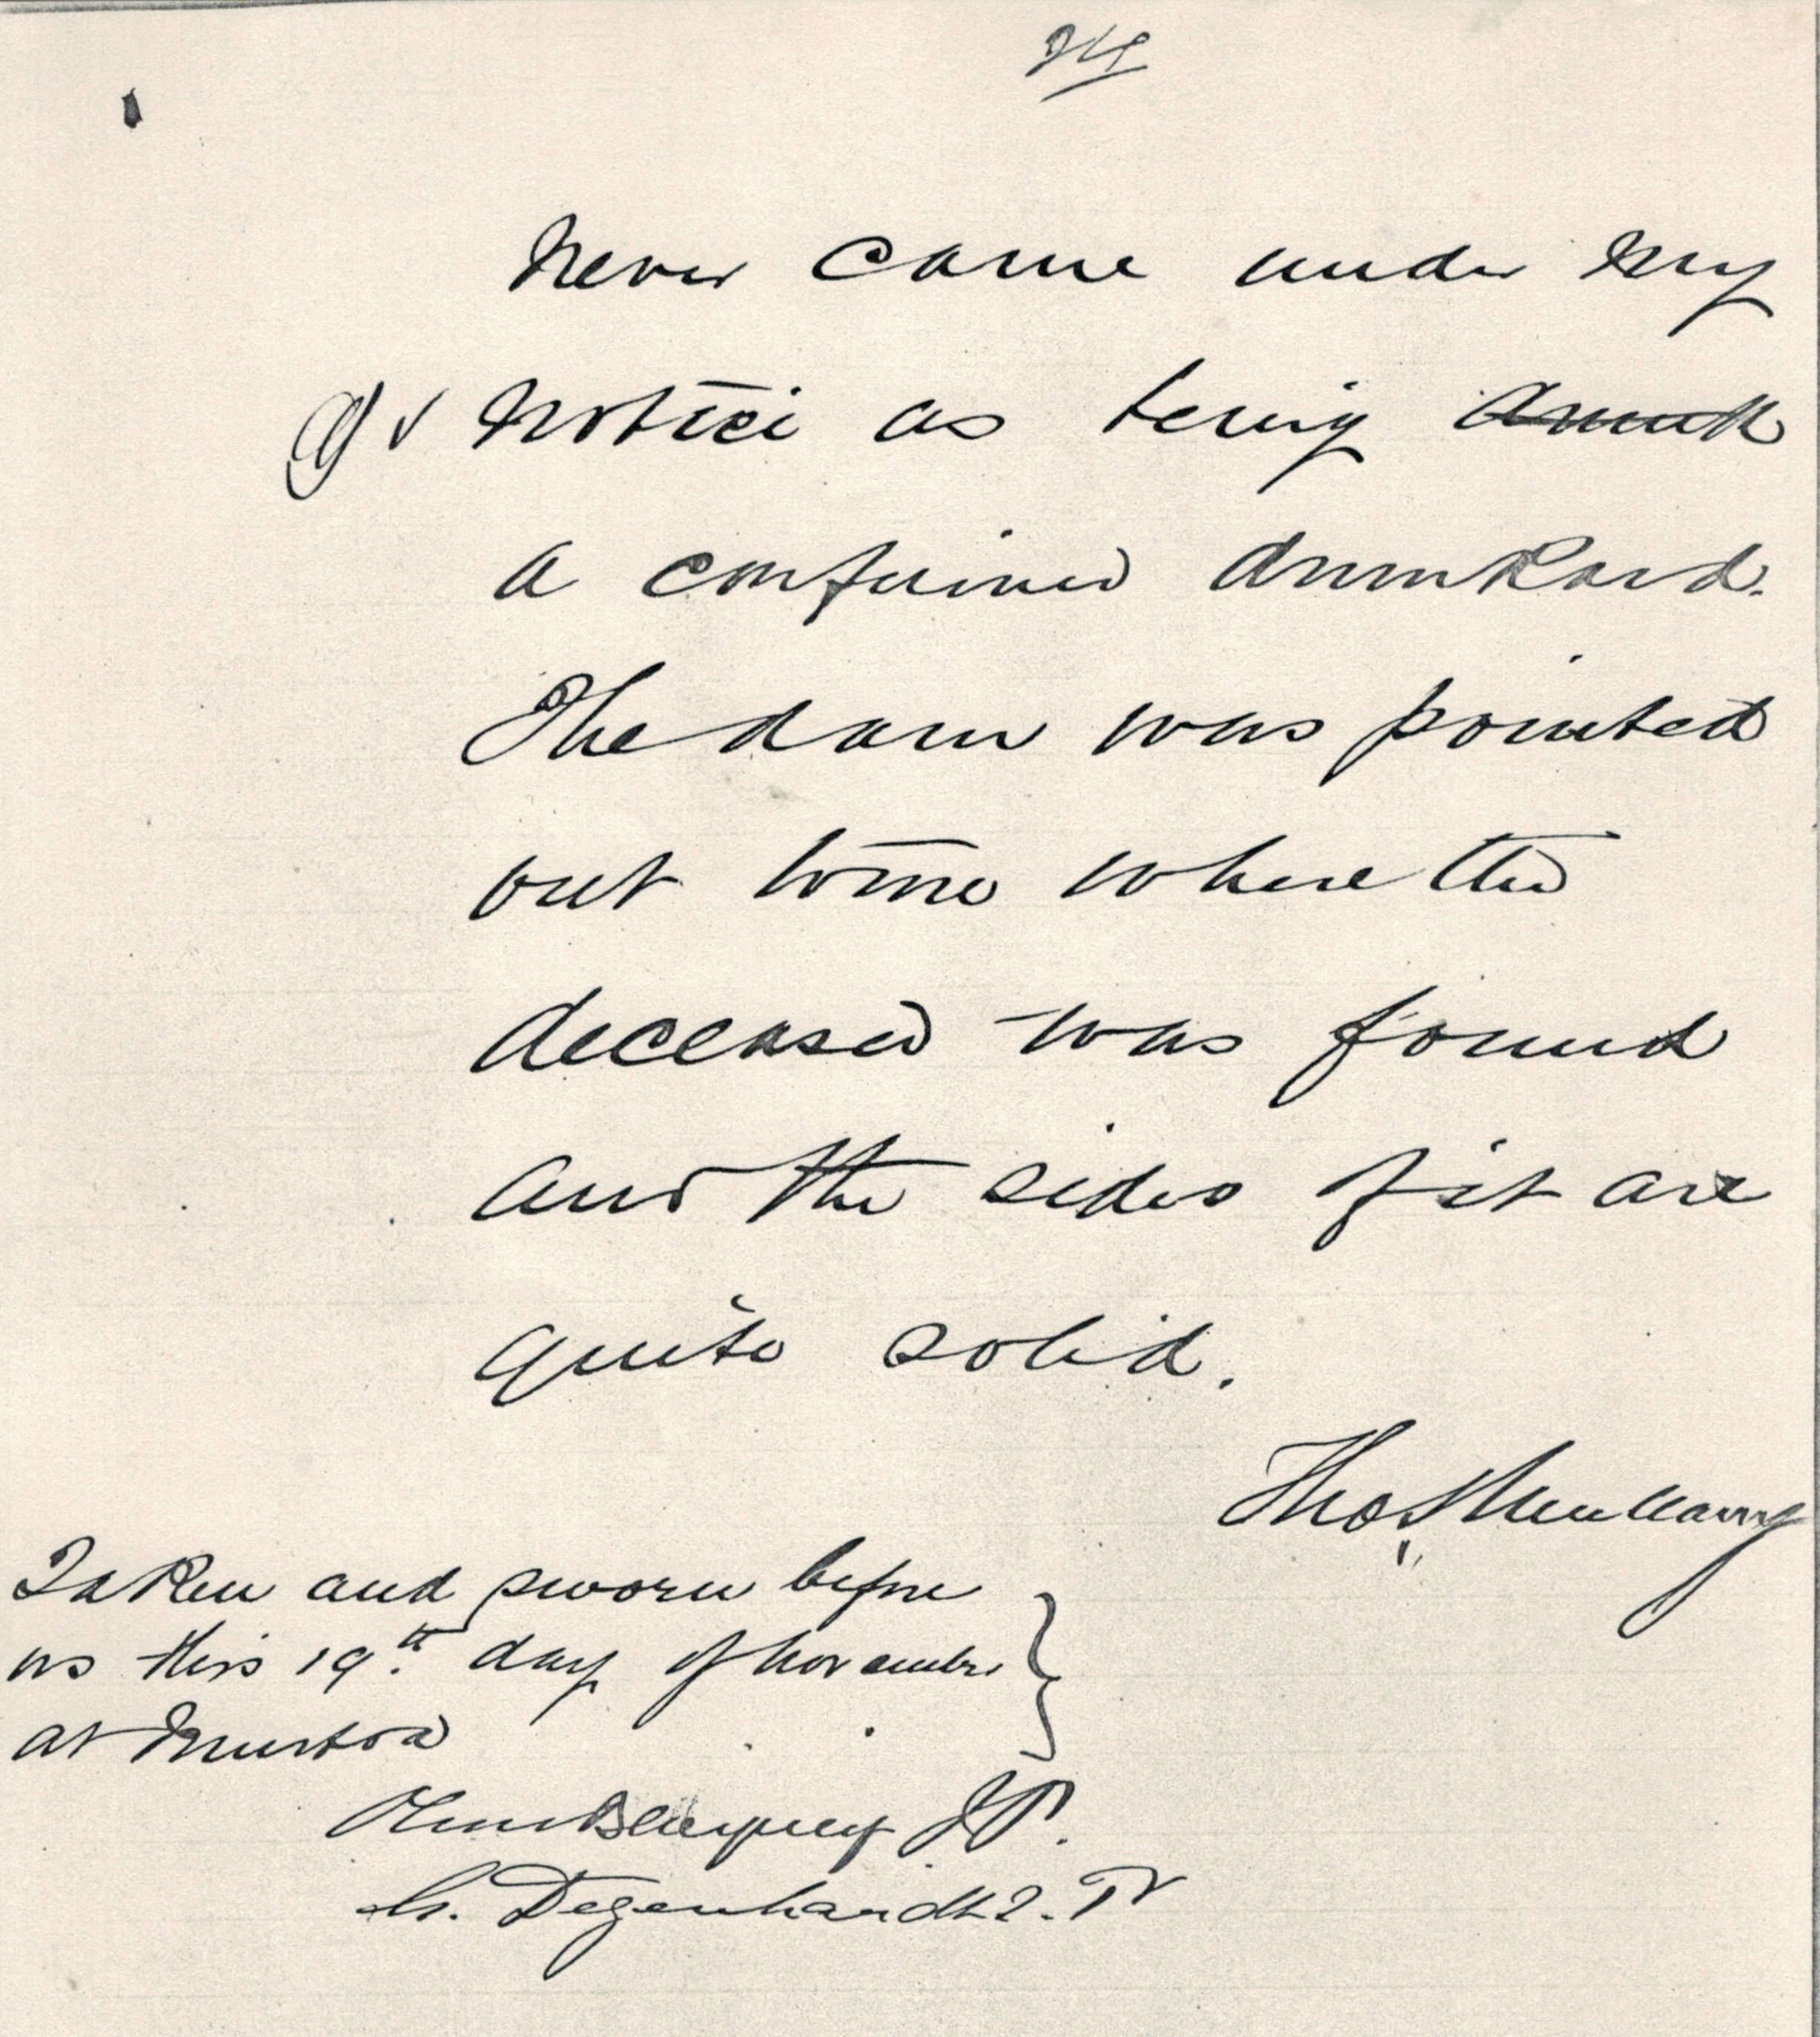 never came under my
notice as being
a confirmed drunkard.
The dam was pointed
out to me where the
deceased was found
and the sides of it are
quite solid.
Thos
Taken and sworn before
us this 19th day of November
at Murtoa
J.P.
Degenhardt J.P